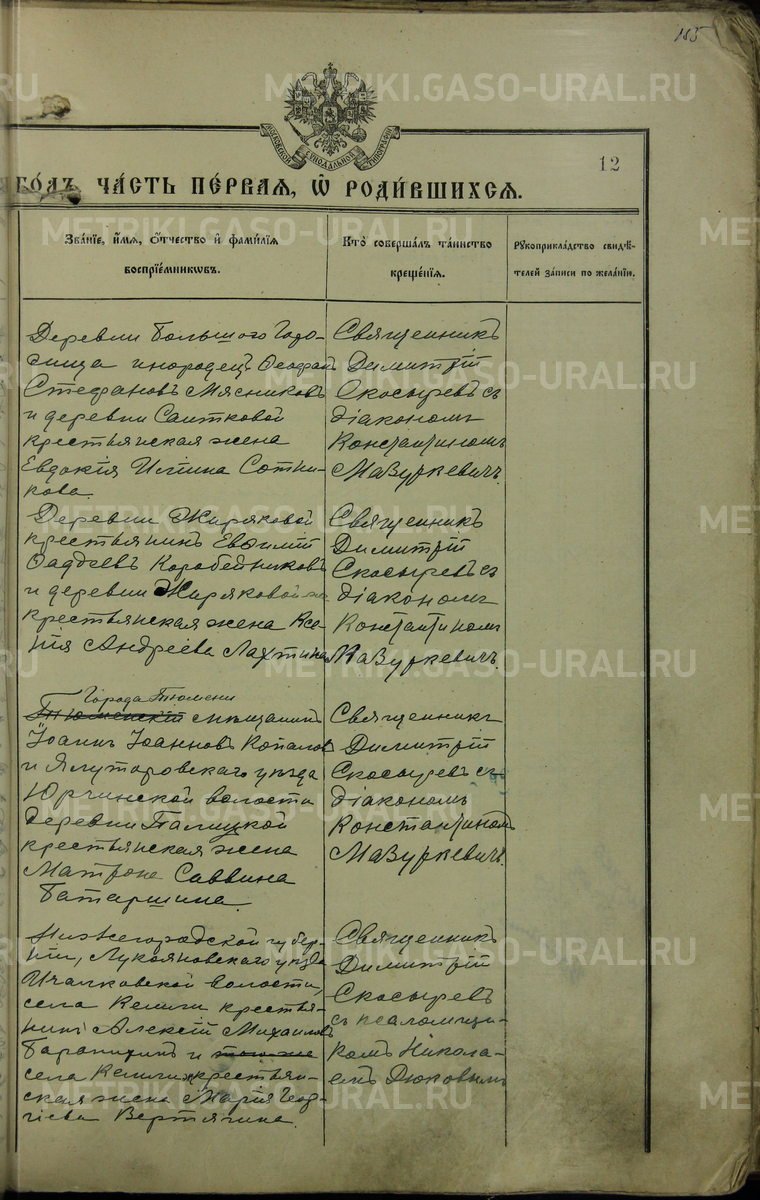 185
МОСКОВСКОЙ СѴНОДАЛЬНОЙ ТИПОГРАФІИ
12
ЧА́СТЬ ПЕ́РВАЯ, Ѿ РОДИ́ВШИХСЯ.
Зва́нїе, и҆́мя, ѻ҆́тчество и҆ фами́лїя
воспрїе́мникѡвъ.
Кто̀ соверша́лъ та́инство
креще́нїя.
Рꙋкоприкла́дство свидѣ́-
телей за́писи по жела́нїю.
Деревни Большого Горо-
дища инородецъ Ѳеофанъ
Стефановъ Мясниковъ
и деревни Саитковой
крестьянская жена
Евдокія Иліина Сотни-
кова.
Священникъ
Димитрій
Скосыревъ съ
діакономъ
Константиномъ
Мазуркевичъ.
Деревни Жиряковой
крестьянинъ Евѳимій
Ѳаддеевъ Коробейниковъ
и деревни Жиряковой
крестьянская жена Ксе-
нія Андреева Лахтина
Священникъ
Димитрій
Скосыревъ съ
діакономъ
Константиномъ
Мазуркевичъ.
Города Тюмени
Тюменскій мѣщанинъ
Іоаннъ Іоанновъ Копаловъ
и Ялуторовскаго уѣзда
Юрчинской волости
деревни Палецкой
крестьянская жена
Матрона Саввина
Батаршина.
Священникъ
Димитрій
Скосыревъ съ
діакономъ
Константиномъ
Мазуркевичъ.
Нижегородской губер-
ніи, Лукояновскаго уѣзда
Ичалковской волости,
села Кемли крестья-
нинъ Алексій Михаиловъ
Баранихинъ и того же
села Кемли крестьян-
ская жена Марія Геор-
гіева Вертягина.
Священникъ
Димитрій
Скосыревъ
съ псаломщи-
комъ Никола-
емъ Дюковымъ
METRIKI.GASO-URAL.RU
METRIKI.GASO-URAL.RU
METRIKI.GASO-URAL.RU
METRIKI.GASO-URAL.RU
METRIKI.GASO-URAL.RU
METRIKI.GASO-URAL.RU
METRIKI.GASO-URAL.RU
METRIKI.GASO-URAL.RU